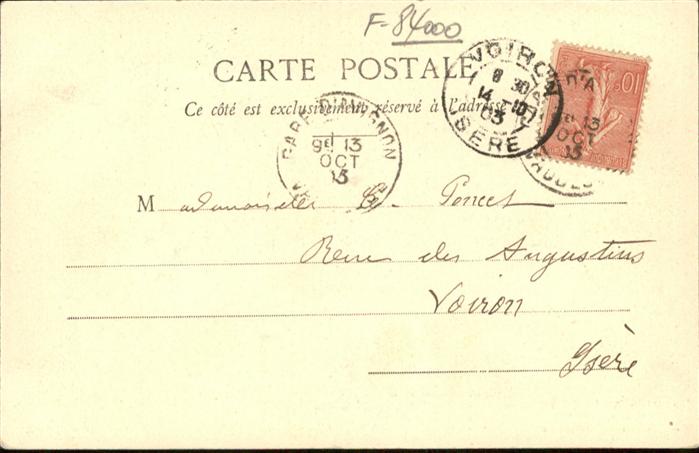 F-84000
CARTE POSTALE
Ce côté est exclusivement réservé à l'adresse
VOIRON
8 30
14 10
03
ISÈRE
GARE D'AVIGNON
9E 13
OCT
03
10
D'A
9E 13
OCT
03
VAUCLUSE
Mademoiselle G. Poncet
Rue des Augustins
Voiron
Isère